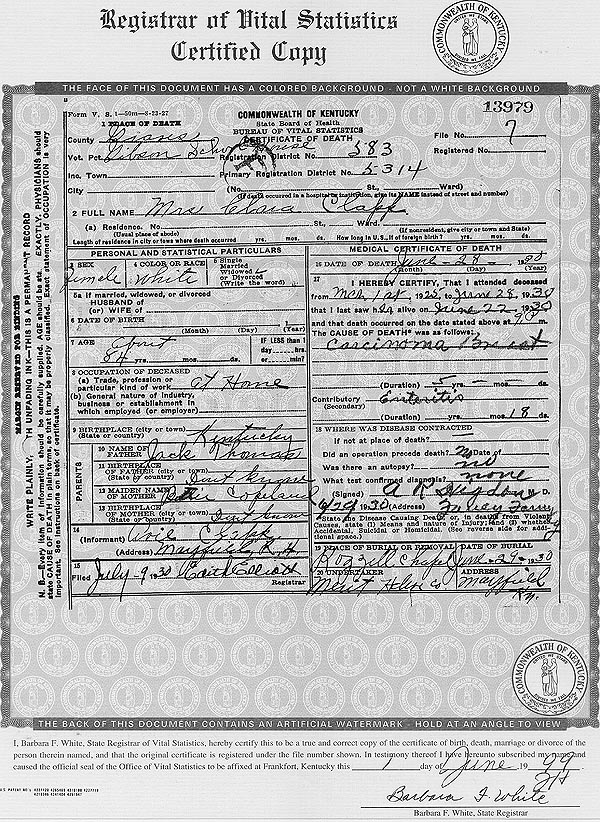 Registrar of Vital Statistics
Certified Copy
COMMONWEALTH OF KENTUCKY
THE FACE OF THIS DOCUMENT HAS A COLORED BACKGROUND - NOT A WHITE BACKGROUND
Form V. S. 1—50m—8-23-27
13979
COMMONWEALTH OF KENTUCKY
State Board of Health
BUREAU OF VITAL STATISTICS
CERTIFICATE OF DEATH
1 PLACE OF DEATH
County Graves
File No. 7
Vot. Pct. Schoolhouse
Registration District No. 583
Registered No.
Inc. Town
Primary Registration District No. 5314
City (No. St., Ward)
(If death occurred in a hospital or institution, give its NAME instead of street and number)
2 FULL NAME Mrs Clara Clapp
(a) Residence. No. St., Ward.
(Usual place of abode) (If nonresident, give city or town and State)
Length of residence in city or town where death occurred yrs. mos. ds. How long in U.S., if of foreign birth? yrs. mos. ds.
PERSONAL AND STATISTICAL PARTICULARS
3 SEX Female
4 COLOR OR RACE White
5 Single Married Widowed or Divorced (Write the word)
5a If married, widowed, or divorced
HUSBAND of
(or) WIFE of
6 DATE OF BIRTH
(Month) (Day) (Year)
7 AGE About 84 yrs. mos. ds.
IF LESS than 1 day hrs. or min?
8 OCCUPATION OF DECEASED
(a) Trade, profession or particular kind of work At Home
(b) General nature of industry, business or establishment in which employed (or employer)
9 BIRTHPLACE (city or town) Kentucky
(State or country)
PARENTS
10 NAME OF FATHER Jack Thomas
11 BIRTHPLACE OF FATHER (city or town) Dont Know
(State or country)
12 MAIDEN NAME OF MOTHER Copeland
13 BIRTHPLACE OF MOTHER (city or town) Dont Know
(State or country)
14 (Informant) Clapp
(Address) Mayfield
15 Filed July-9 1930 Elliott
Registrar
MEDICAL CERTIFICATE OF DEATH
16 DATE OF DEATH June - 28 - 1930
(Month) (Day) (Year)
17 I HEREBY CERTIFY, That I attended deceased
from Mch 1st, 19 to June 28, 1930
that I last saw her alive on June 22 1930
and that death occurred on the date stated above at m.
The CAUSE OF DEATH was as follows:
Carcinoma Breast
(Duration) 5 yrs. — mos. ds.
Contributory Enteritis
(Secondary)
(Duration) yrs. mos. 18 ds.
18 WHERE WAS DISEASE CONTRACTED
If not at place of death?
Did an operation precede death? No Date of
Was there an autopsy? no
What test confirmed diagnosis? none
(Signed) M. D.
6/29 1930 (Address)
State the Disease Causing Death, or, in deaths from Violent Causes, state (1) Means and nature of Injury; and (2) whether Accidental, Suicidal or Homicidal. (See reverse side for additional space.)
19 PLACE OF BURIAL OR REMOVAL Chapel
DATE OF BURIAL June - 29 - 1930
20 UNDERTAKER Merit
ADDRESS Mayfield Ky.
MARGIN RESERVED FOR BINDING
WRITE PLAINLY, WITH UNFADING INK—THIS IS A PERMANENT RECORD
N. B.—Every item of information should be carefully supplied. AGE should be stated EXACTLY. PHYSICIANS should state CAUSE OF DEATH in plain terms, so that it may be properly classified. Exact statement of OCCUPATION is very important. See instructions on back of certificate.
COMMONWEALTH OF KENTUCKY
THE BACK OF THIS DOCUMENT CONTAINS AN ARTIFICIAL WATERMARK - HOLD AT AN ANGLE TO VIEW
I, Barbara F. White, State Registrar of Vital Statistics, hereby certify this to be a true and correct copy of the certificate of birth, death, marriage or divorce of the
person therein named, and that the original certificate is registered under the file number shown. In testimony thereof I have hereunto subscribed my name and
caused the official seal of the Office of Vital Statistics to be affixed at Frankfort, Kentucky this 1 day of June, 19 99
Barbara F. White
Barbara F. White, State Registrar